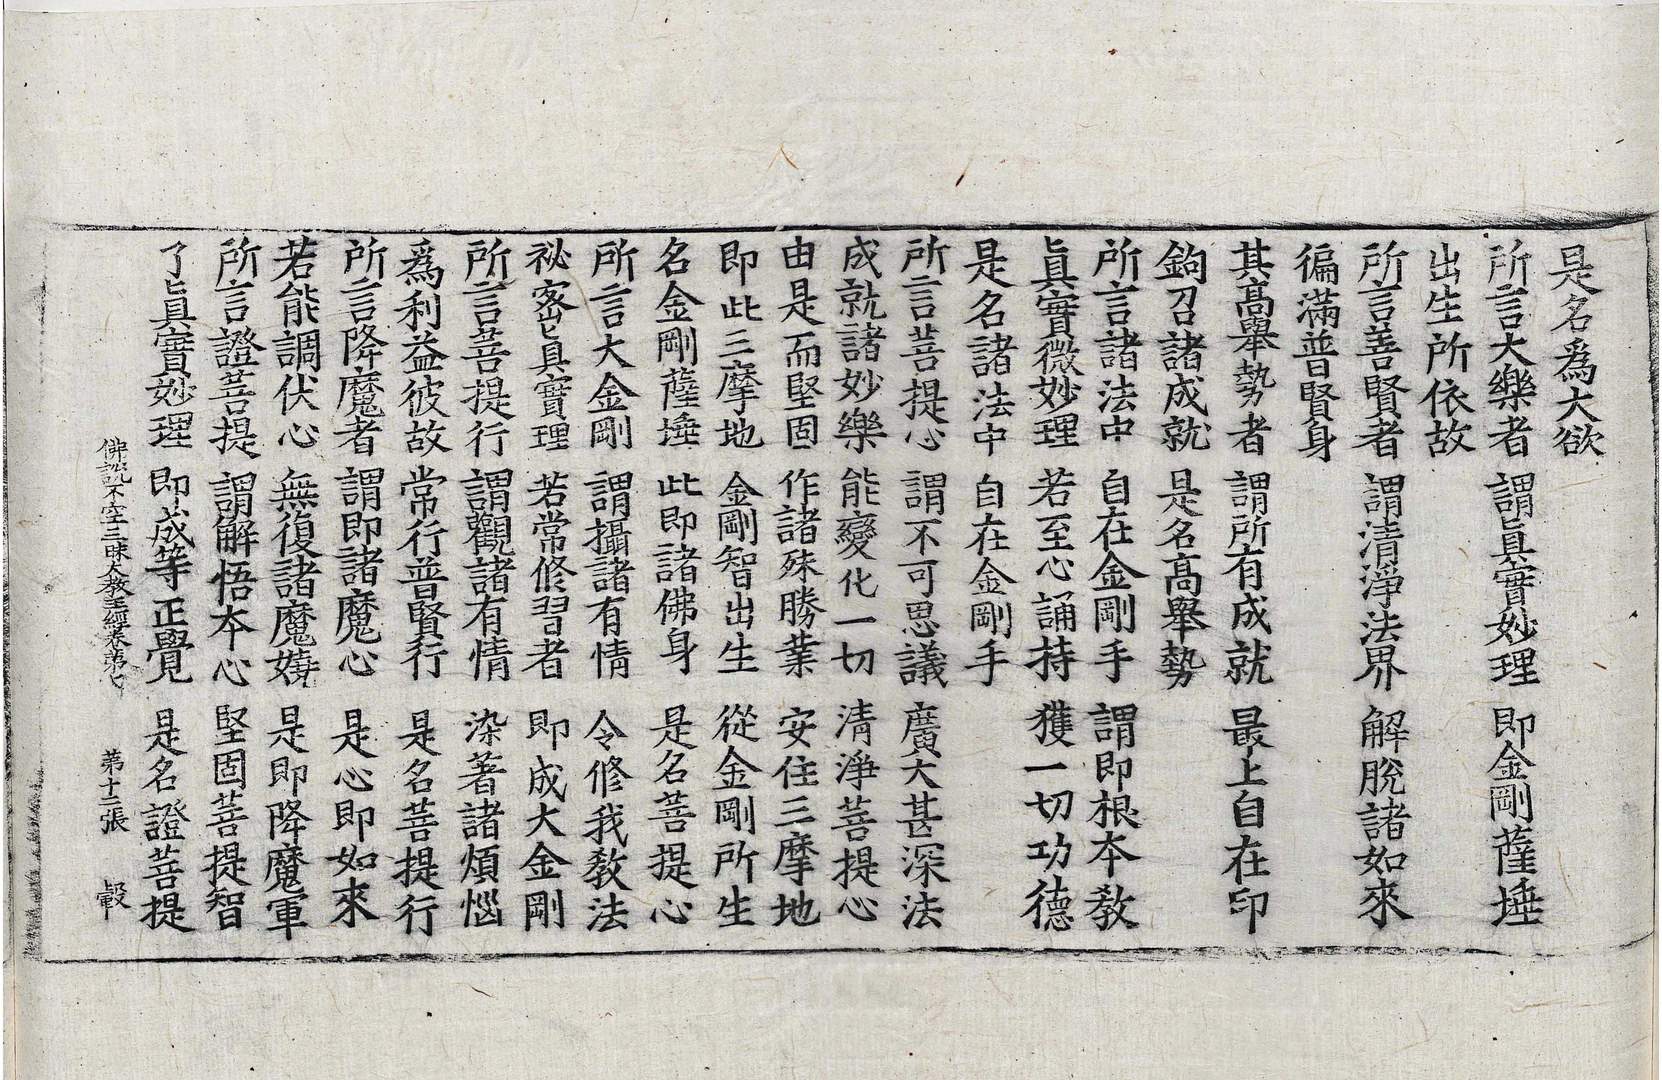 是名爲大欲
所言大樂者 謂眞實妙理 即金剛薩埵
出生所依故
所言善賢者 謂清淨法界 解脫諸如來
徧滿普賢身
其高舉勢者 謂所有成就 最上自在印
鉤召諸成就 是名高舉勢
所言諸法中 自在金剛手 謂即根本敎
眞實微妙理 若至心誦持 獲一切功德
是名諸法中 自在金剛手
所言菩提心 謂不可思議 廣大甚深法
成就諸妙樂 能變化一切 清淨菩提心
由是而堅固 作諸殊勝業 安住三摩地
即此三摩地 金剛智出生 從金剛所生
名金剛薩埵 此即諸佛身 是名菩提心
所言大金剛 謂攝諸有情 令修我敎法
祕密眞實理 若常修習者 即成大金剛
所言菩提行 謂觀諸有情 染著諸煩惱
爲利益彼故 常行普賢行 是名菩提行
所言降魔者 謂即諸魔心 是心即如來
若能調伏心 無復諸魔嬈 是即降魔軍
所言證菩提 謂解悟本心 堅固菩提智
了眞實妙理 即成等正覺 是名證菩提
佛說不空三昧大敎王經卷第七 第十二張 㲉